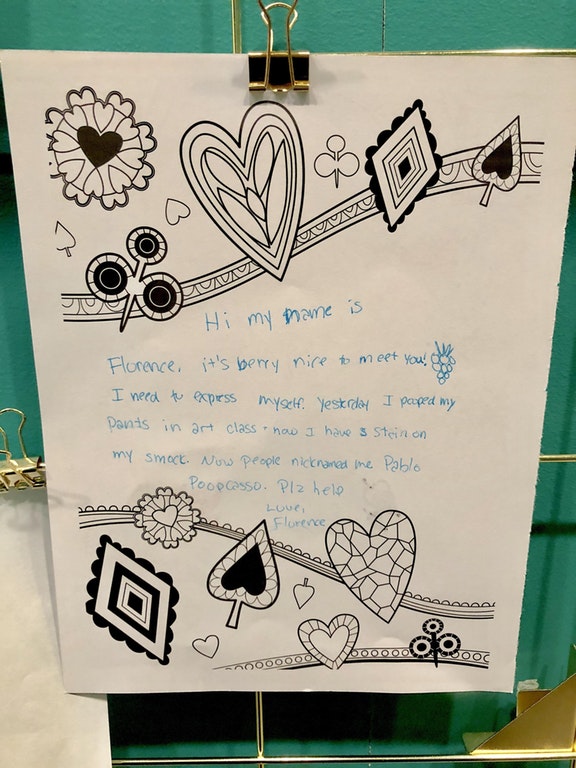 Hi my name is
Florence, it's berry nice to meet you!
I need to express myself. Yesterday I pooped my
pants in art class. now I have a stein on
my smock. Now people nicknamed me Pablo
Poopcasso. Plz help
Love,
Florence